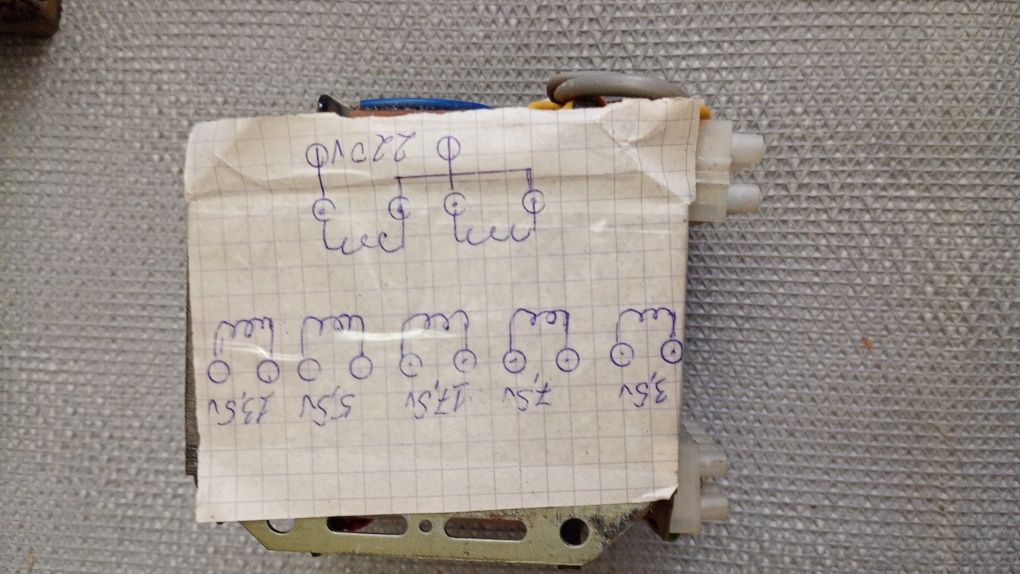 3,5v 7,5v 17,5v 5,5v 13,5v
220V